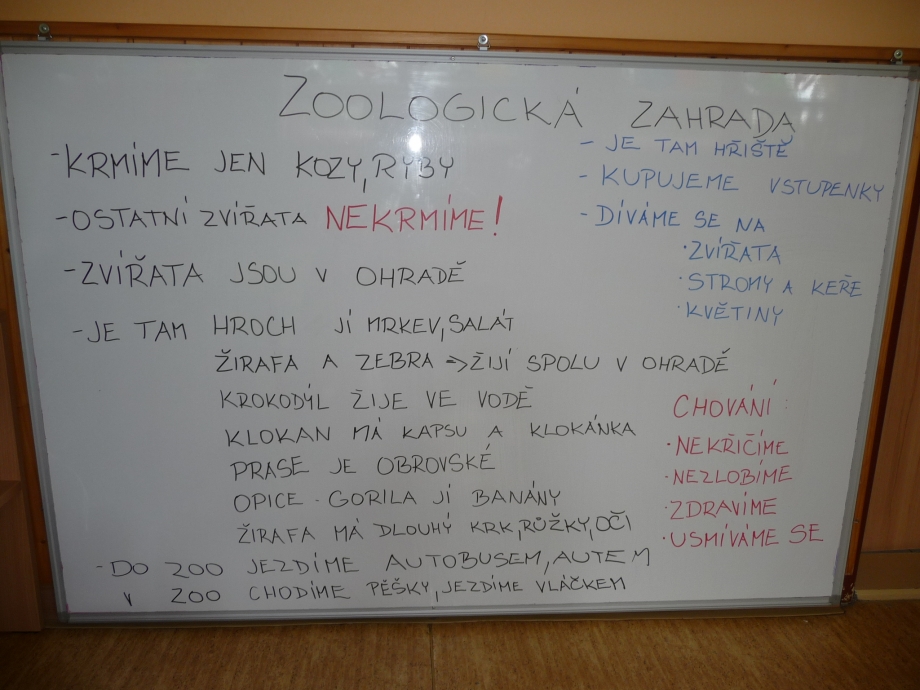 ZOOLOGICKÁ ZAHRADA
- KRMÍME JEN KOZY, RYBY
- OSTATNÍ ZVÍŘATA NEKRMÍME!
- ZVÍŘATA JSOU V OHRADĚ
- JE TAM HROCH JÍ MRKEV, SALÁT
ŽIRAFA A ZEBRA -> ŽIJÍ SPOLU V OHRADĚ
KROKODÝL ŽIJE VE VODĚ
KLOKAN MÁ KAPSU A KLOKÁNKA
PRASE JE OBROVSKÉ
OPICE - GORILA JÍ BANÁNY
ŽIRAFA MÁ DLOUHÝ KRK, RŮŽKY, OČI
- DO ZOO JEZDÍME AUTOBUSEM, AUTEM
V ZOO CHODÍME PĚŠKY, JEZDÍME VLÁČKEM
- JE TAM HŘIŠTĚ
- KUPUJEME VSTUPENKY
- DÍVÁME SE NA
· ZVÍŘATA
· STROMY A KEŘE
· KVĚTINY
CHOVÁNÍ:
· NEKŘIČÍME
· NEZLOBÍME
· ZDRAVÍME
· USMÍVÁME SE